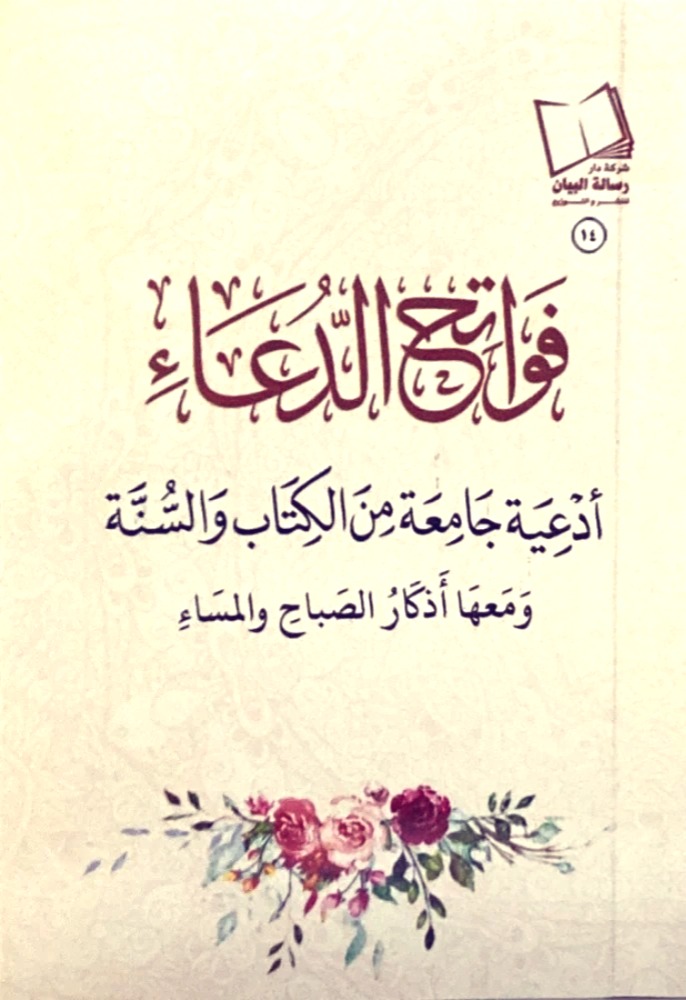 شركة دار
رسالة البيان
للنشر والتوزيع
١٤
فَوَاتِحُ الدُّعَاءِ
أدْعِيَة جَامِعَة مِنَ الكِتَاب وَالسُّنَّة
وَمَعهَا أَذكَارُ الصَباحِ والمسَاءِ